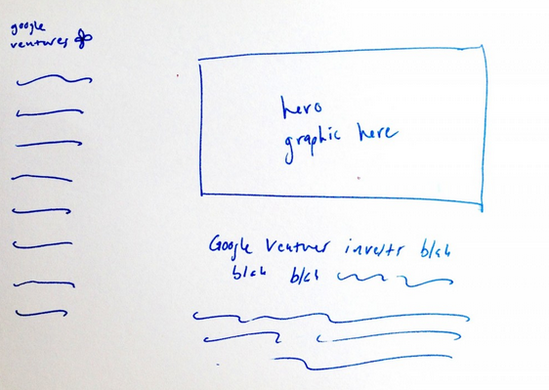 google
ventures
hero
graphic here
Google Ventures invests blah
blah blah